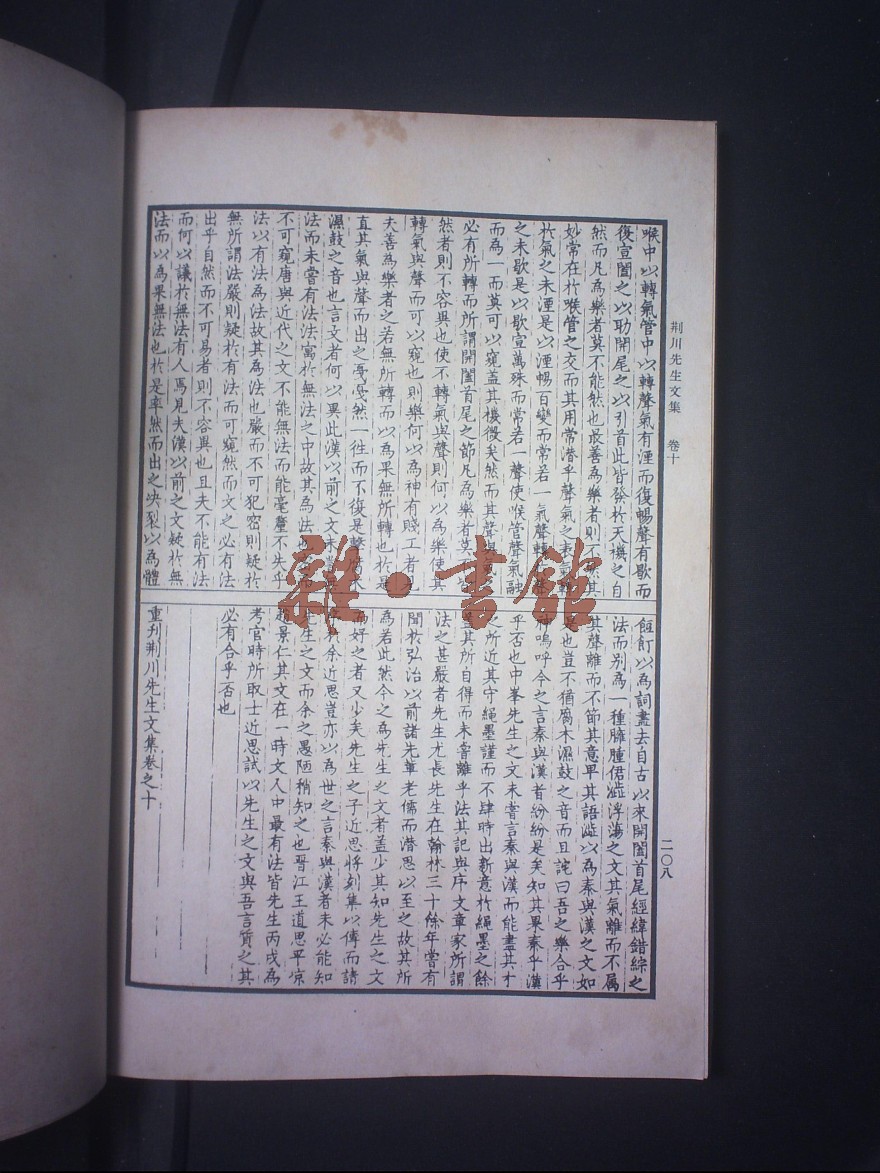 荆川先生文集　卷十
喉中以轉氣管中以轉聲氣有湮而復暢聲有歇而
復宣闔之以助開尾之以引首此皆發於天機之自
然而凡為樂者莫不能然也最善為樂者則不然其
妙常在於喉管之交而其用常潛乎聲氣之表氣轉
於氣之未湮是以湮暢百變而常若一氣聲轉於聲
之未歇是以歇宣萬殊而常若一聲使喉管聲氣融
而為一而莫可以窺蓋其機微矣然而其聲與氣之
必有所轉而所謂開闔首尾之節凡為樂者莫不皆
然者則不容異也使不轉氣與聲則何以為樂使其
轉氣與聲而可以窺也則樂何以為神有賤工者見
夫善為樂者之若無所轉而以為果無所轉也於是
直其氣與聲而出之戞戞然一往而不復是擊腐木
濕鼓之音也言文者何以異此漢以前之文未嘗無
法而未嘗有法法寓於無法之中故其為法也密而
不可窺唐與近代之文不能無法而能毫釐不失乎
法以有法為法故其為法也嚴而不可犯密則疑於
無所謂法嚴則疑於有法而可窺然而文之必有法
出乎自然而不可易者則不容異也且夫不能有法
而何以議於無法有人焉見夫漢以前之文疑於無
法而以為果無法也於是率然而出之决裂以為體
餖飣以為詞盡去自古以來開闔首尾經緯錯綜之
法而別為一種臃腫侰澁浮蕩之文其氣離而不属
其聲離而不節其意卑其語澁以為秦與漢之文如
是也豈不猶腐木濕鼓之音而且詫曰吾之樂合乎
神嗚呼今之言秦與漢者紛紛是矣知其果秦乎漢
乎否也中峯先生之文未嘗言秦與漢而能盡其才
之所近其守繩墨謹而不肆時出新意於繩墨之餘
其所自得而未嘗離乎法其記與序文章家所謂
法之甚嚴者先生尤長先生在翰林三十餘年嘗有
聞於弘治以前諸先軰老儒而潛思以至之故其所
為若此然今之為先生之文者盖少其知先生之文
為好之者又少矣先生之子近思將刻集以傳而請
余近思豈亦以為世之言秦與漢者未必能知
先生之文而余之愚陋稍知之也晋江王道思平凉
趙景仁其文在一時文人中最有法皆先生丙戍為
考官時所取士近思試以先生之文與吾言質之其
必有合乎否也
重刋荆川先生文集卷之十
二〇八
雜·書館